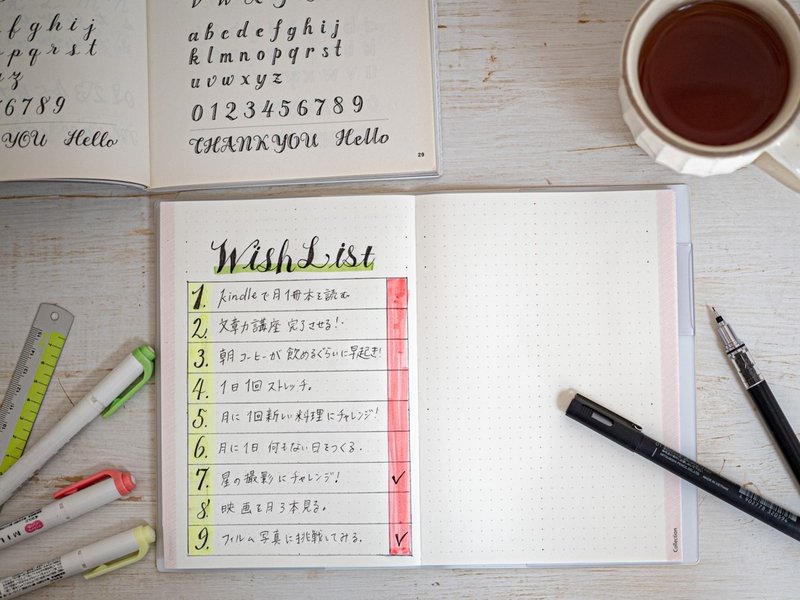 f g h i j
p q r s t
z
6 7 8 9
YOU Hello
a b c d e f g h i j
k l m n o p q r s t
u v w x y z
0 1 2 3 4 5 6 7 8 9
THANK YOU Hello
29
Wish List
1. kindleで月1冊本を読む
2. 文章力講座 完了させる!
3. 朝コーヒーが飲めるぐらいに早起き!
4. 1日1回ストレッチ。
5. 月に1回新しい料理にチャレンジ!
6. 月に1日 何もない日をつくる。
7. 星の撮影にチャレンジ! ✓
8. 映画を月3本見る。
9. フィルム写真に挑戦してみる。 ✓
Collection